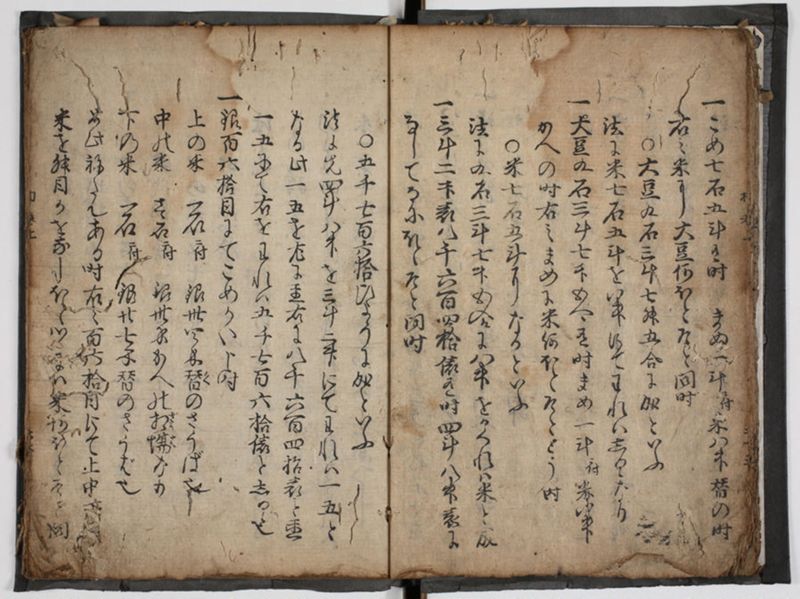 一こめ七石五斗有時 まめ一斗ニ付米八升替の時
右之米ニ大豆何ほとそと問時
〇大豆九石三斗七升五合に成といふ
法に米七石五斗を八升にてわれハしるゝなり
一大豆九石三斗七升五合有時まめ一斗ニ付米八升
かへの時右之まめに米何ほとそととう時
〇米七石五斗ニなるといふ
法に九石三斗七升五合に八升をかくれハ米と成
一三斗二升表八千六百四拾俵有時四斗八升表に
なしてハなにほとそと問時
〇五千七百六拾ひやうに成といふ
法に先四斗八升を三斗二升にてわれハ一五と
なる此一五を左に置右に八千六百四拾表と置
一五にて右をわれハ五千七百六拾俵としるゝ也
一銀百六拾目にてこめかい申時
上の米 一石ニ付 銀卅四匁替のさうば也
中の米 壱石付 銀卅匁かへの相場なり
下の米 一石付 銀廿七匁替のさうば也
如此ねたんある時右之百六拾目にて上中下
米を 米何ほとそと問